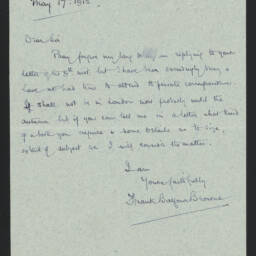 May 17. 1915.
Dear Sir
Pray forgive my long delay in replying to your
letter of the 5th inst. but I have been exceedingly busy &
have not had time to attend to private correspondence.
I shall not be in London most probably until the
autumn but if you can tell me in a letter what kind
of sketch you require & some details as to size,
kind of subject &c I will consider the matter.
I am
Yours faithfully
Frank Brangwyn